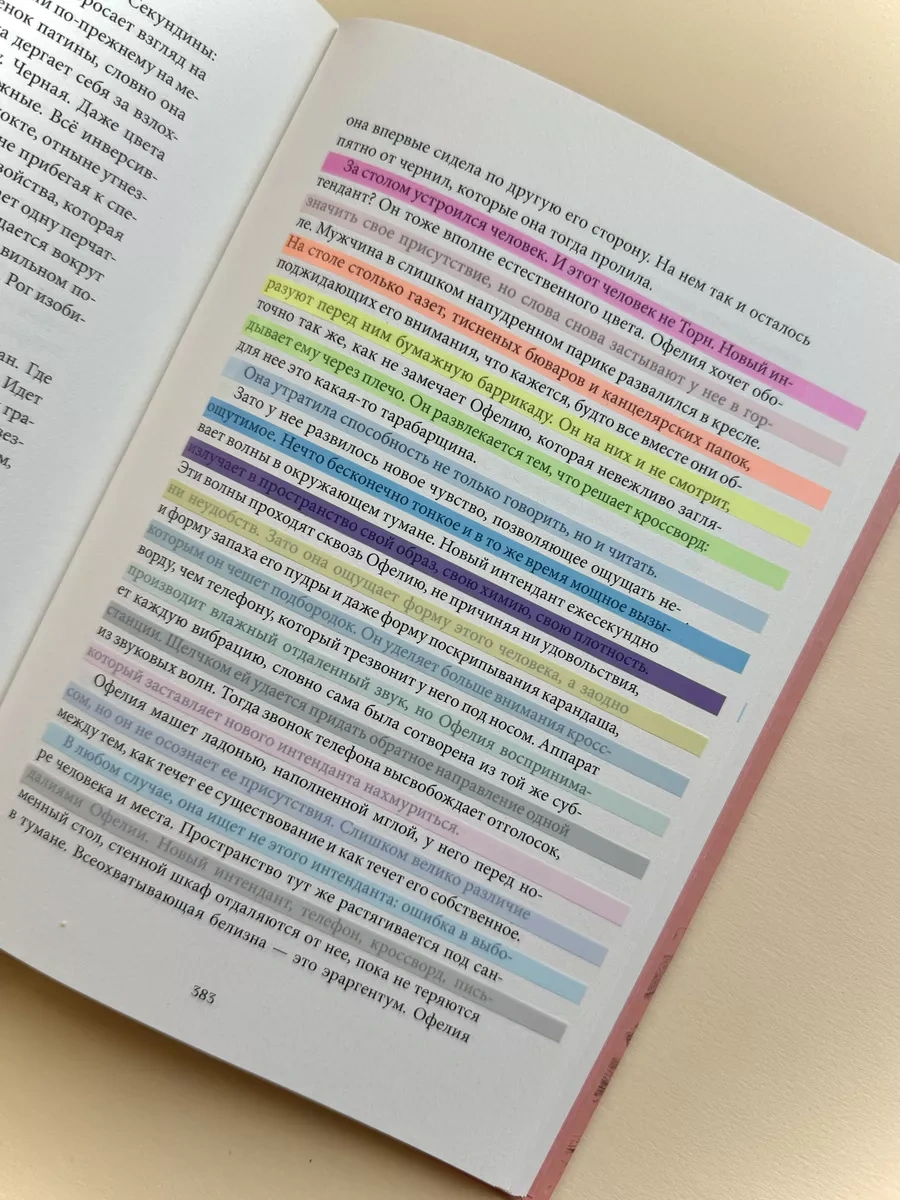 Секундины:
росает взгляд на
и по-прежнему на ме-
енок патины, словно она
а дергает себя за взлох-
Черная. Даже цвета
жные. Всё инверсив-
окте, отныне угнез-
не прибегая к спе-
войства, которая
ает одну перчат-
щается вокруг
вильном по-
Рог изоби-
ан. Где
Идет
гра-
вез-
м,
она впервые сидела по другую его сторону. На нем так и осталось
пятно от чернил, которые она тогда пролила.
За столом устроился человек. И этот человек не Торн. Новый ин-
тендант? Он тоже вполне естественного цвета. Офелия хочет обо-
значить свое присутствие, но слова снова застывают у нее в гор-
ле. Мужчина в слишком напудренном парике развалился в кресле.
На столе столько газет, тисненых бюваров и канцелярских папок,
поджидающих его внимания, что кажется, будто все вместе они об-
разуют перед ним бумажную баррикаду. Он на них и не смотрит,
точно так же, как не замечает Офелию, которая невежливо загля-
дывает ему через плечо. Он развлекается тем, что решает кроссворд:
для нее это какая-то тарабарщина.
Она утратила способность не только говорить, но и читать.
Зато у нее развилось новое чувство, позволяющее ощущать не-
ощутимое. Нечто бесконечно тонкое и в то же время мощное вызы-
вает волны в окружающем тумане. Новый интендант ежесекундно
излучает в пространство свой образ, свою химию, свою плотность.
Эти волны проходят сквозь Офелию, не причиняя ни удовольствия,
ни неудобств. Зато она ощущает форму этого человека, а заодно
и форму запаха его пудры и даже форму поскрипывания карандаша,
которым он чешет подбородок. Он уделяет больше внимания кросс-
ворду, чем телефону, который трезвонит у него под носом. Аппарат
производит влажный отдаленный звук, но Офелия воспринима-
ет каждую вибрацию, словно сама была сотворена из той же суб-
станции. Щелчком ей удается придать обратное направление одной
из звуковых волн. Тогда звонок телефона высвобождает отголосок,
который заставляет нового интенданта нахмуриться.
Офелия машет ладонью, наполненной мглой, у него перед но-
сом, но он не осознает ее присутствия. Слишком велико различие
между тем, как течет ее существование и как течет его собственное.
В любом случае, она ищет не этого интенданта: ошибка в выбо-
ре человека и места. Пространство тут же растягивается под сан-
далиями Офелии. Новый интендант, телефон, кроссворд, пись-
менный стол, стенной шкаф отдаляются от нее, пока не теряются
в тумане. Всеохватывающая белизна — это эраргентум. Офелия
383